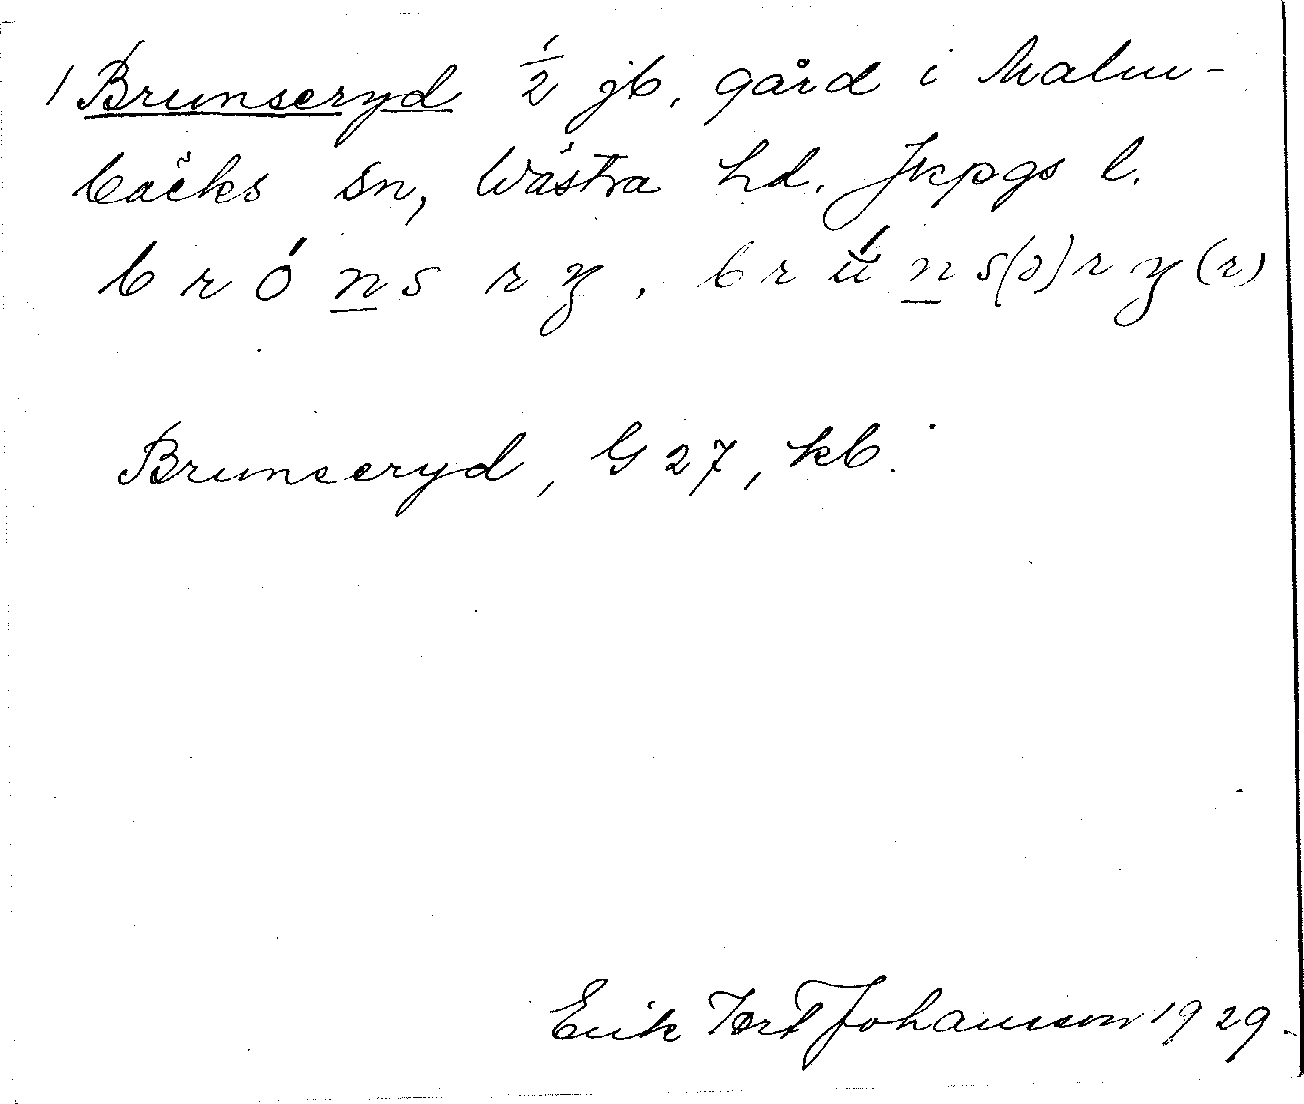 1 Brunseryd ½ jb. gård i Malm-
bäcks sn, Västra hd. Jkpgs l.
b r ó n s r y . b r ú n s(ə) r y (r)
Brunseryd, G 27, kb.
Erik Johansson 1929.